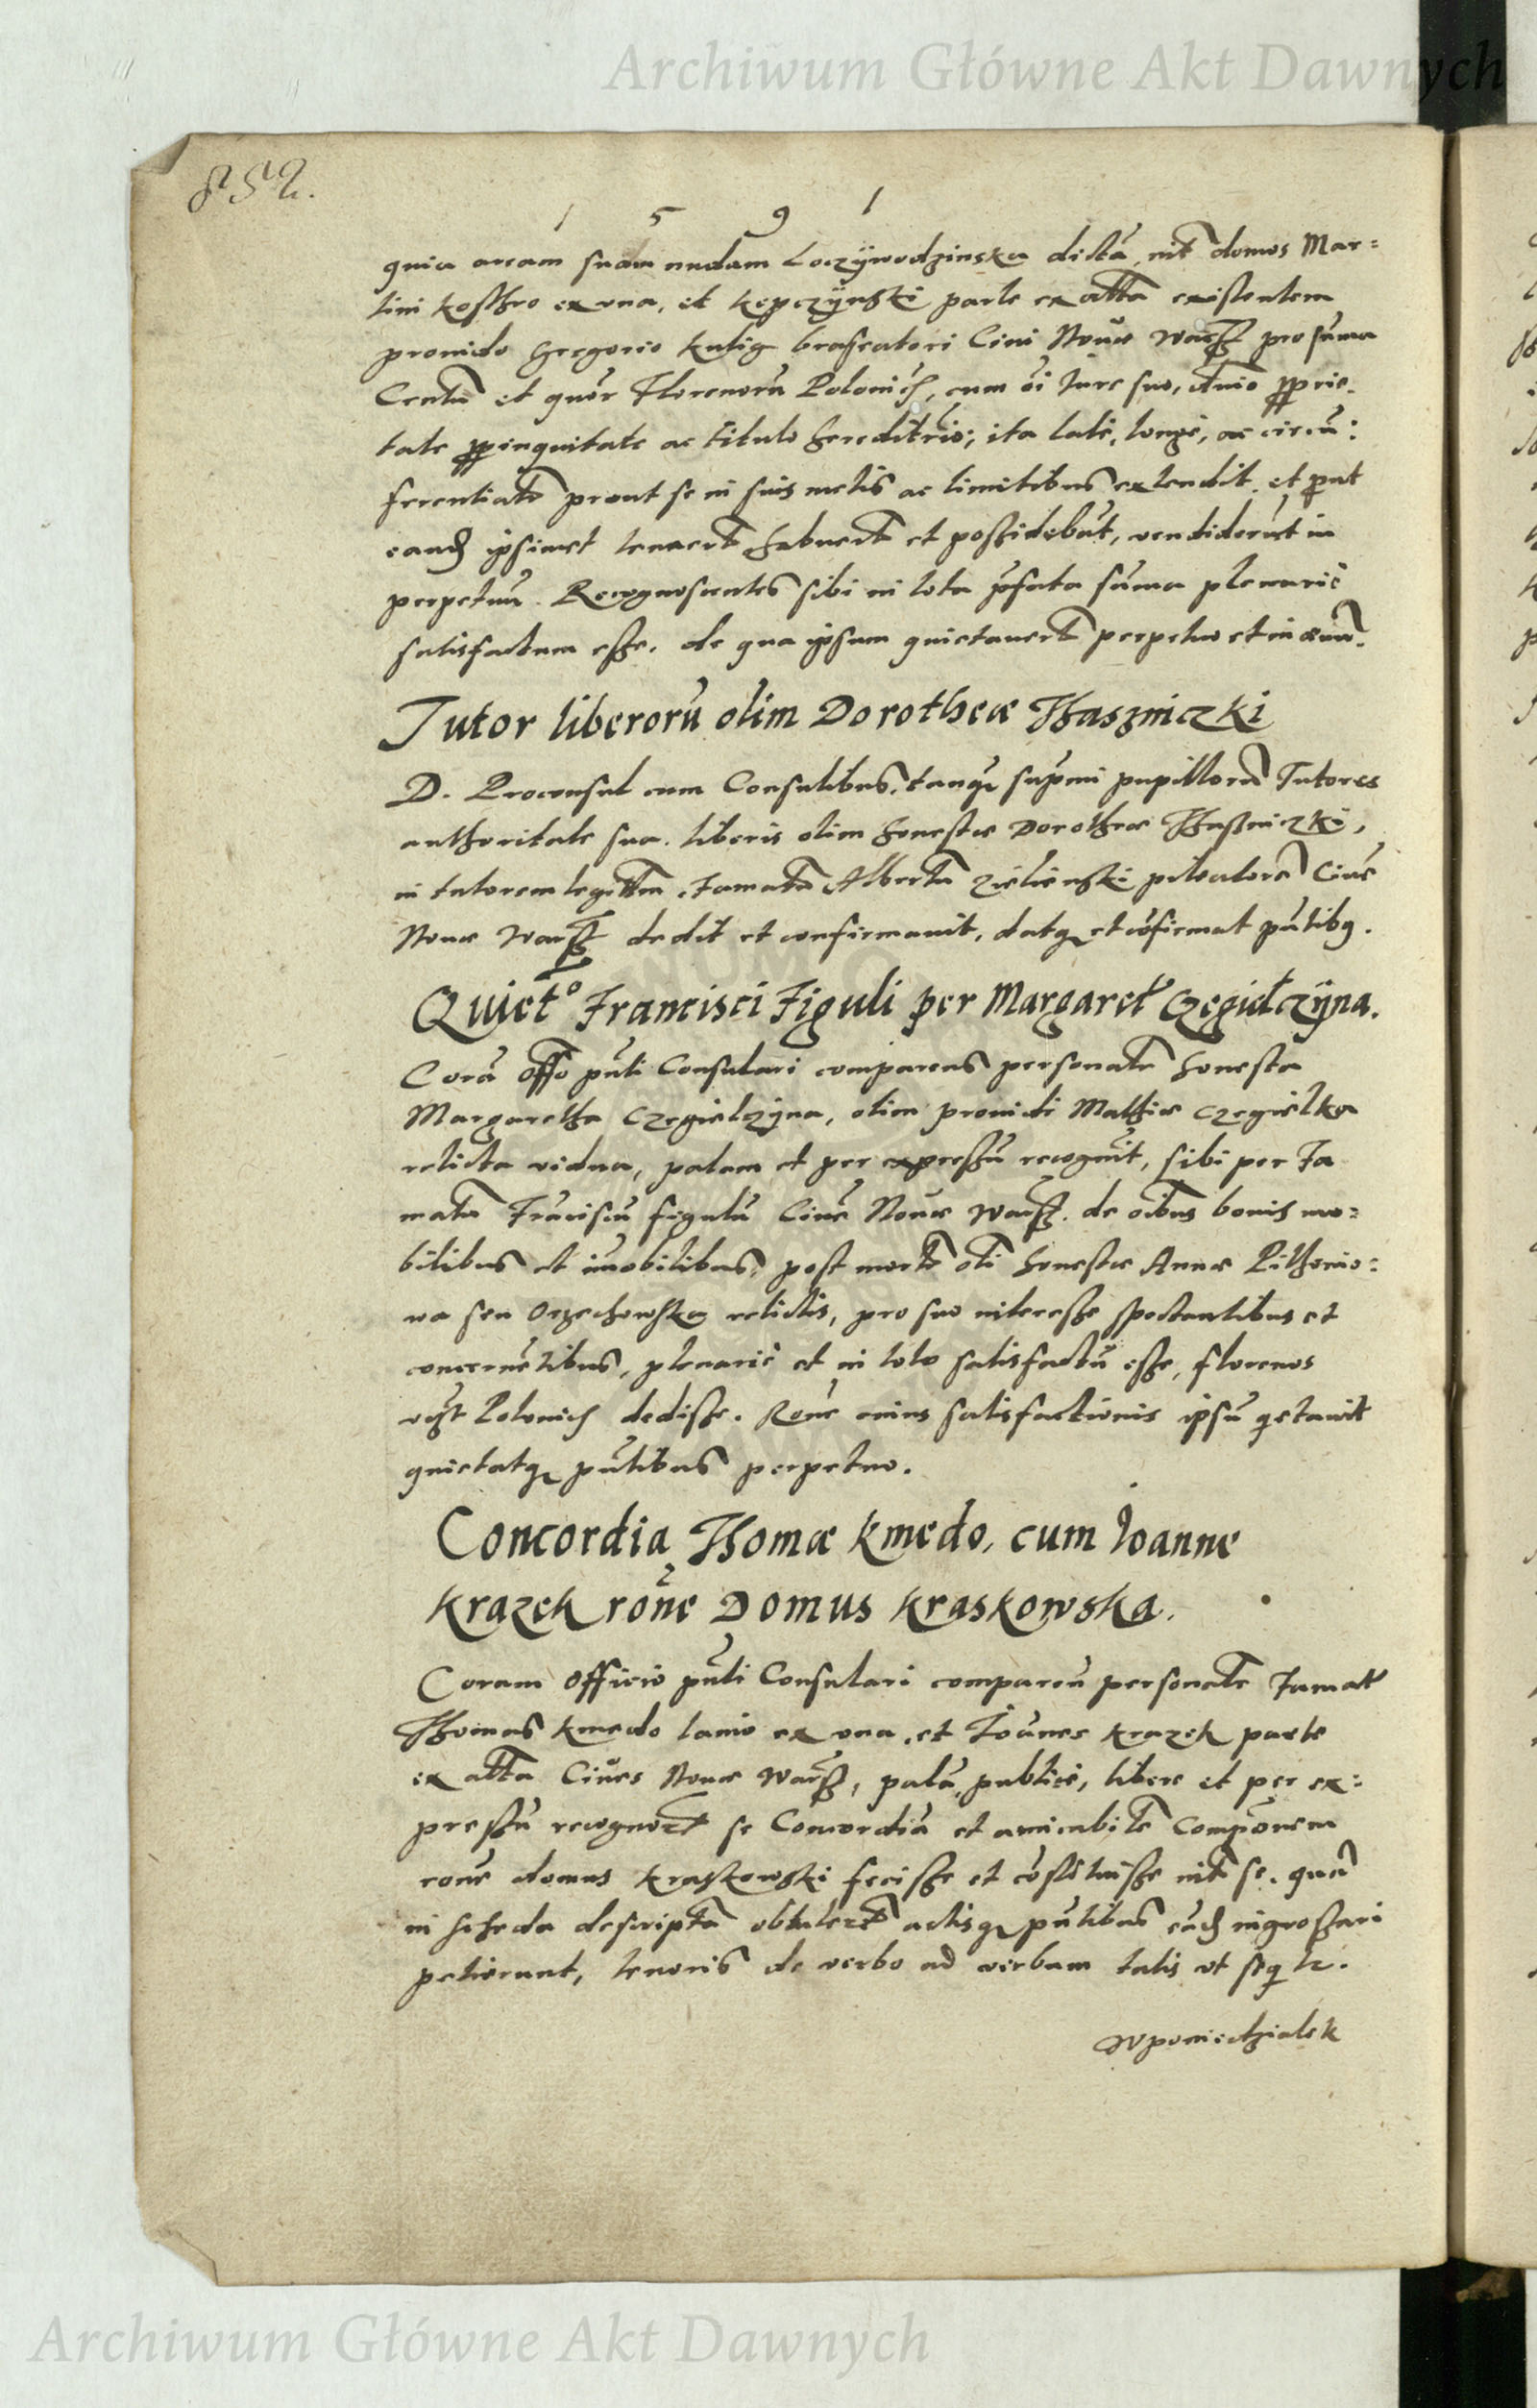 Archiwum Główne Akt Dawnych
852.
1 5 9 1
quia aream suam nudam Loczÿwodzinska dictā, int̃ domos Mar=
tini Kosthro ex una, et Kepczÿnski parte ex altā existentem
provido Gregorio Kulig braseatori Civi Novæ Warß pro sum̄a
Centū et quor Florenorū Polonich, cum oi̅ Jure suo, dn̄io ꝓprie-
tate ꝓpinquitate ac titulo hereditrio; ita late, longe, ac circū:
ferentiatr̃ prout se in suis metis ac limitibus extendit, et ꝓut
eandē ipsimet tenuert̃ habuert̃ et poßidebāt, vendiderūt in
perpetuū. Recognoscentes sibi in tota p̄fata sum̄a plenarie
satisfactum eße. de qua ipsum quietavert̃ perpetuo et in ævū.
Tutor liberorū olim Dorotheæ Thaszniczki
D. Proconsul cum Consulibus, tanqꝫ sup̄mi pupillorū Tutores
authoritate sua. liberis olim honestæ Dorotheæ Thaßniczki,
in tutorem legittm̄ Famatū Albertū Zielienski pileatorē Civē
Novæ Warß dedit et confirmavit, datqꝫ et cōfirmat pn̄tibꝫ.
Quiett̃o Francisci Figuli per Margaret̃ Czegielczÿna.
Corā offō pn̄ti Consulari comparens personalr̃ honesta
Margaretha Czegielczÿna, olim providi Mathiæ Czegielka
relicta vidua, palam et per expreßū recognvit, sibi per Fa
matū Frāciscū figulū Civē Novæ Warß. de oībus bonis mo=
bilibus et im̄obilibus, post mortē oli̅ honestæ Annæ Pithonio=
wa seu Orzechowska relictis, pro suo intereße spectantibus et
concernētibus, plenarie et in toto satisfactū eße, florenos
octt̃ Polonich dediße. Rōne cuius satisfactionis ipsū qietavit
quietatqꝫ pn̄tibus perpetuo.
Concordia Thomæ Kmedo, cum Joanne
Krazek rōne Domus Kraskowska.
Coram Officio pn̄ti Consulari comparen̄ personalr̃ Famat̃
Thomas Kmedo lanio ex una, et Joānes Krazek parte
ex altā Cives Novæ Warß, palā, publice, libere et per ex=
preßū recognort̃ se Concordiā et amicabilē Compōnem
rōne domus Kraskowski feciße et cōstituiße int̃ se. quā
in scheda descriptā obtulert̃ actisqꝫ pn̄tibus eādē ingroßari
petierunt, tenoris de verbo ad verbum talis ut seqr̃.
W poniedzialek
Archiwum Główne Akt Dawnych